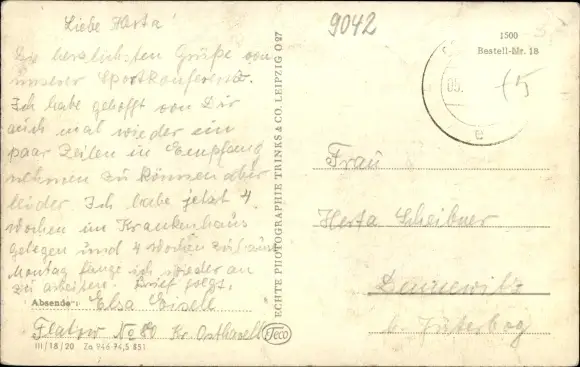 Liebe Herta!
Die herzlichsten Grüße von
unserer Sportkonferenz.
Ich habe gehofft von Dir
auch mal wieder ein
paar Zeilen in Empfang
nehmen zu können aber
leider. Ich habe jetzt 4
Wochen im Krankenhaus
gelegen und 4 Wochen
Montag fange ich wieder an
zu arbeiten. Brief folgt.
Absender: Elsa
Flatow No 80 Kr. Osthavelld
III/18/20 Za 946 74,5 851
ECHTE PHOTOGRAPHIE TRINKS & CO. LEIPZIG O 27
Teco
9042
1500
Bestell-Nr. 18
Frau
Herta Scheibner
Dennewitz
b. Jüterbog